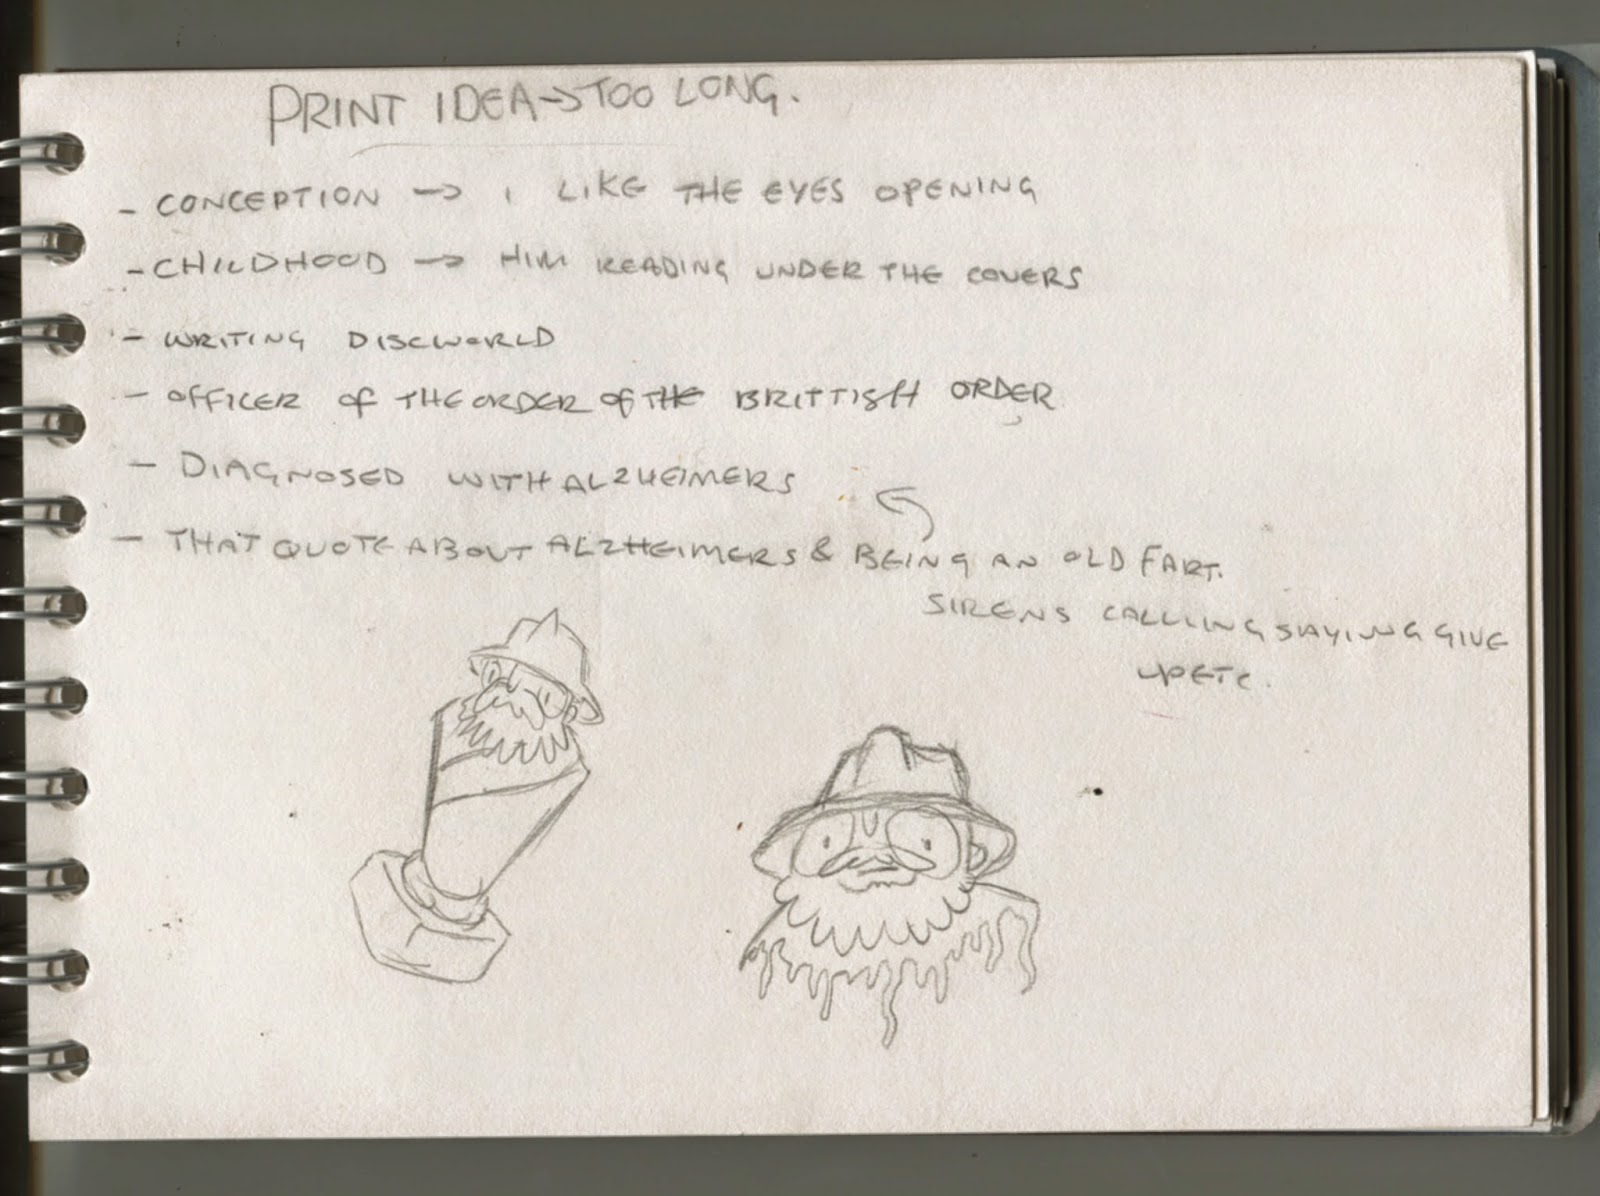 PRINT IDEA → TOO LONG.
- CONCEPTION → I LIKE THE EYES OPENING
- CHILDHOOD → HIM READING UNDER THE COVERS
- WRITING DISCWORLD
- OFFICER OF THE ORDER OF THE BRITTISH ORDER
- DIAGNOSED WITH ALZHEIMERS
- THAT QUOTE ABOUT ALZHEIMERS & BEING AN OLD FART.
SIRENS CALLLING SAYING GIVE
UP ETC.